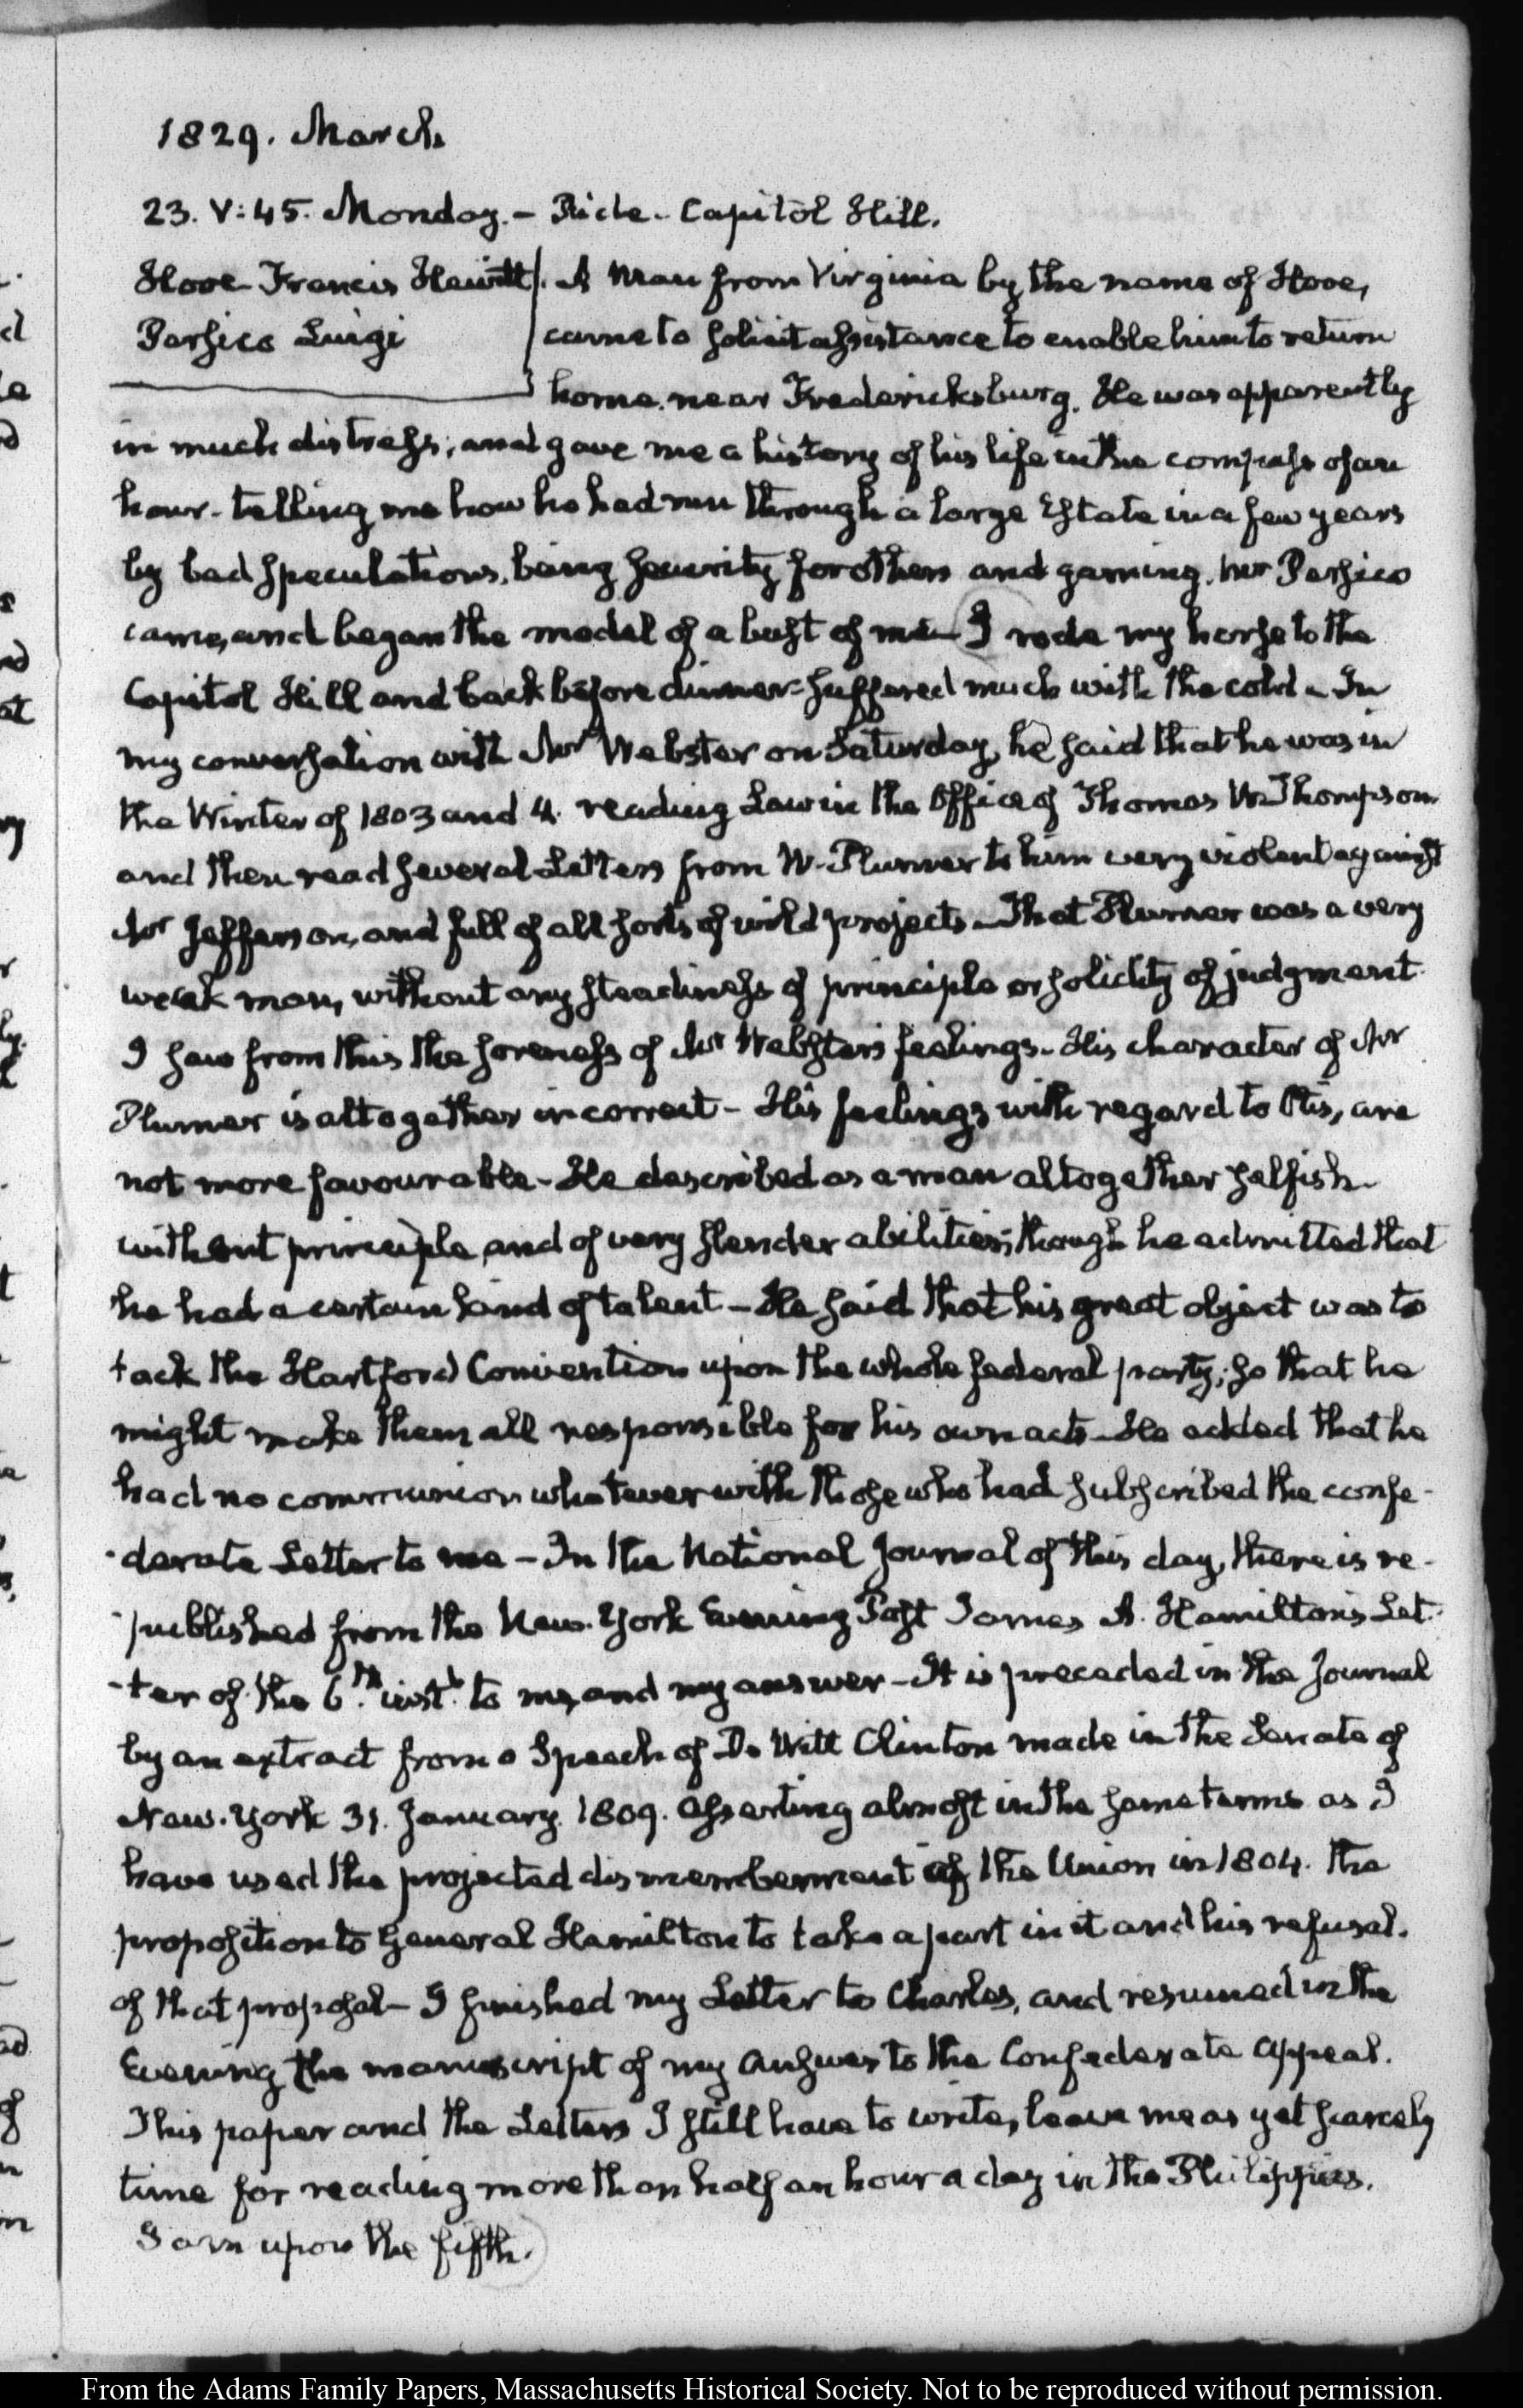 1829. March
23. V:45. Monday. – Ride. Capitol Hill.
Hooe Francis Hewitt
Persico Luigi
A Man from Virginia by the name of Hooe,
came to solicit assistance to enable him to return
home, near Fredericksburg. He was apparently
in much distress, and gave me a history of his life in the compass of an
hour. telling me how he had run through a large Estate in a few years
by bad speculations, being security for others and gaming. Mr Persico
came, and began the model of a bust of me – I rode my horse to the
Capitol Hill and back before dinner – suffered much with the cold – In
my conversation with Mr Webster on Saturday, he said that he was in
the Winter of 1803 and 4. reading Law in the Office of Thomas W. Thompson
and then read several Letters from W. Plumer to him very violent against
Mr Jefferson, and full of all sorts of wild projects – That Plumer was a very
weak man, without any steadiness of principle or solidity of judgment
I saw from this the soreness of Mr Webster's feelings – His character of Mr
Plumer is altogether incorrect – His feelings with regard to Otis, are
not more favourable – He described as a man altogether selfish
without principle, and of very slender abilities; though he admitted that
he had a certain kind of talent – He said that his great object was to
tack the Hartford Convention upon the whole federal party; so that he
might make them all responsible for his own acts – He added that he
had no communion whatever with those who had subscribed the confe-
-derate Letter to me – In the National Journal of this day, there is re-
-published from the New-York Evening Post James A. Hamilton's Let-
-ter of the 6th. inst. to me, and my answer – It is preceded in the Journal
by an extract from a Speech of De Witt Clinton made in the Senate of
New-York 31. January 1809. asserting almost in the same terms as I
have used the projected dismemberment of the Union in 1804. the
proposition to General Hamilton to take a part in it and his refusal.
of that proposal – I finished my Letter to Charles, and resumed in the
Evening the manuscript of my Answer to the Confederate Appeal.
This paper and the Letters I still have to write, leave me as yet scarcely
time for reading more than half an hour a day in the Philippics.
I am upon the fifth.
From the Adams Family Papers, Massachusetts Historical Society. Not to be reproduced without permission.